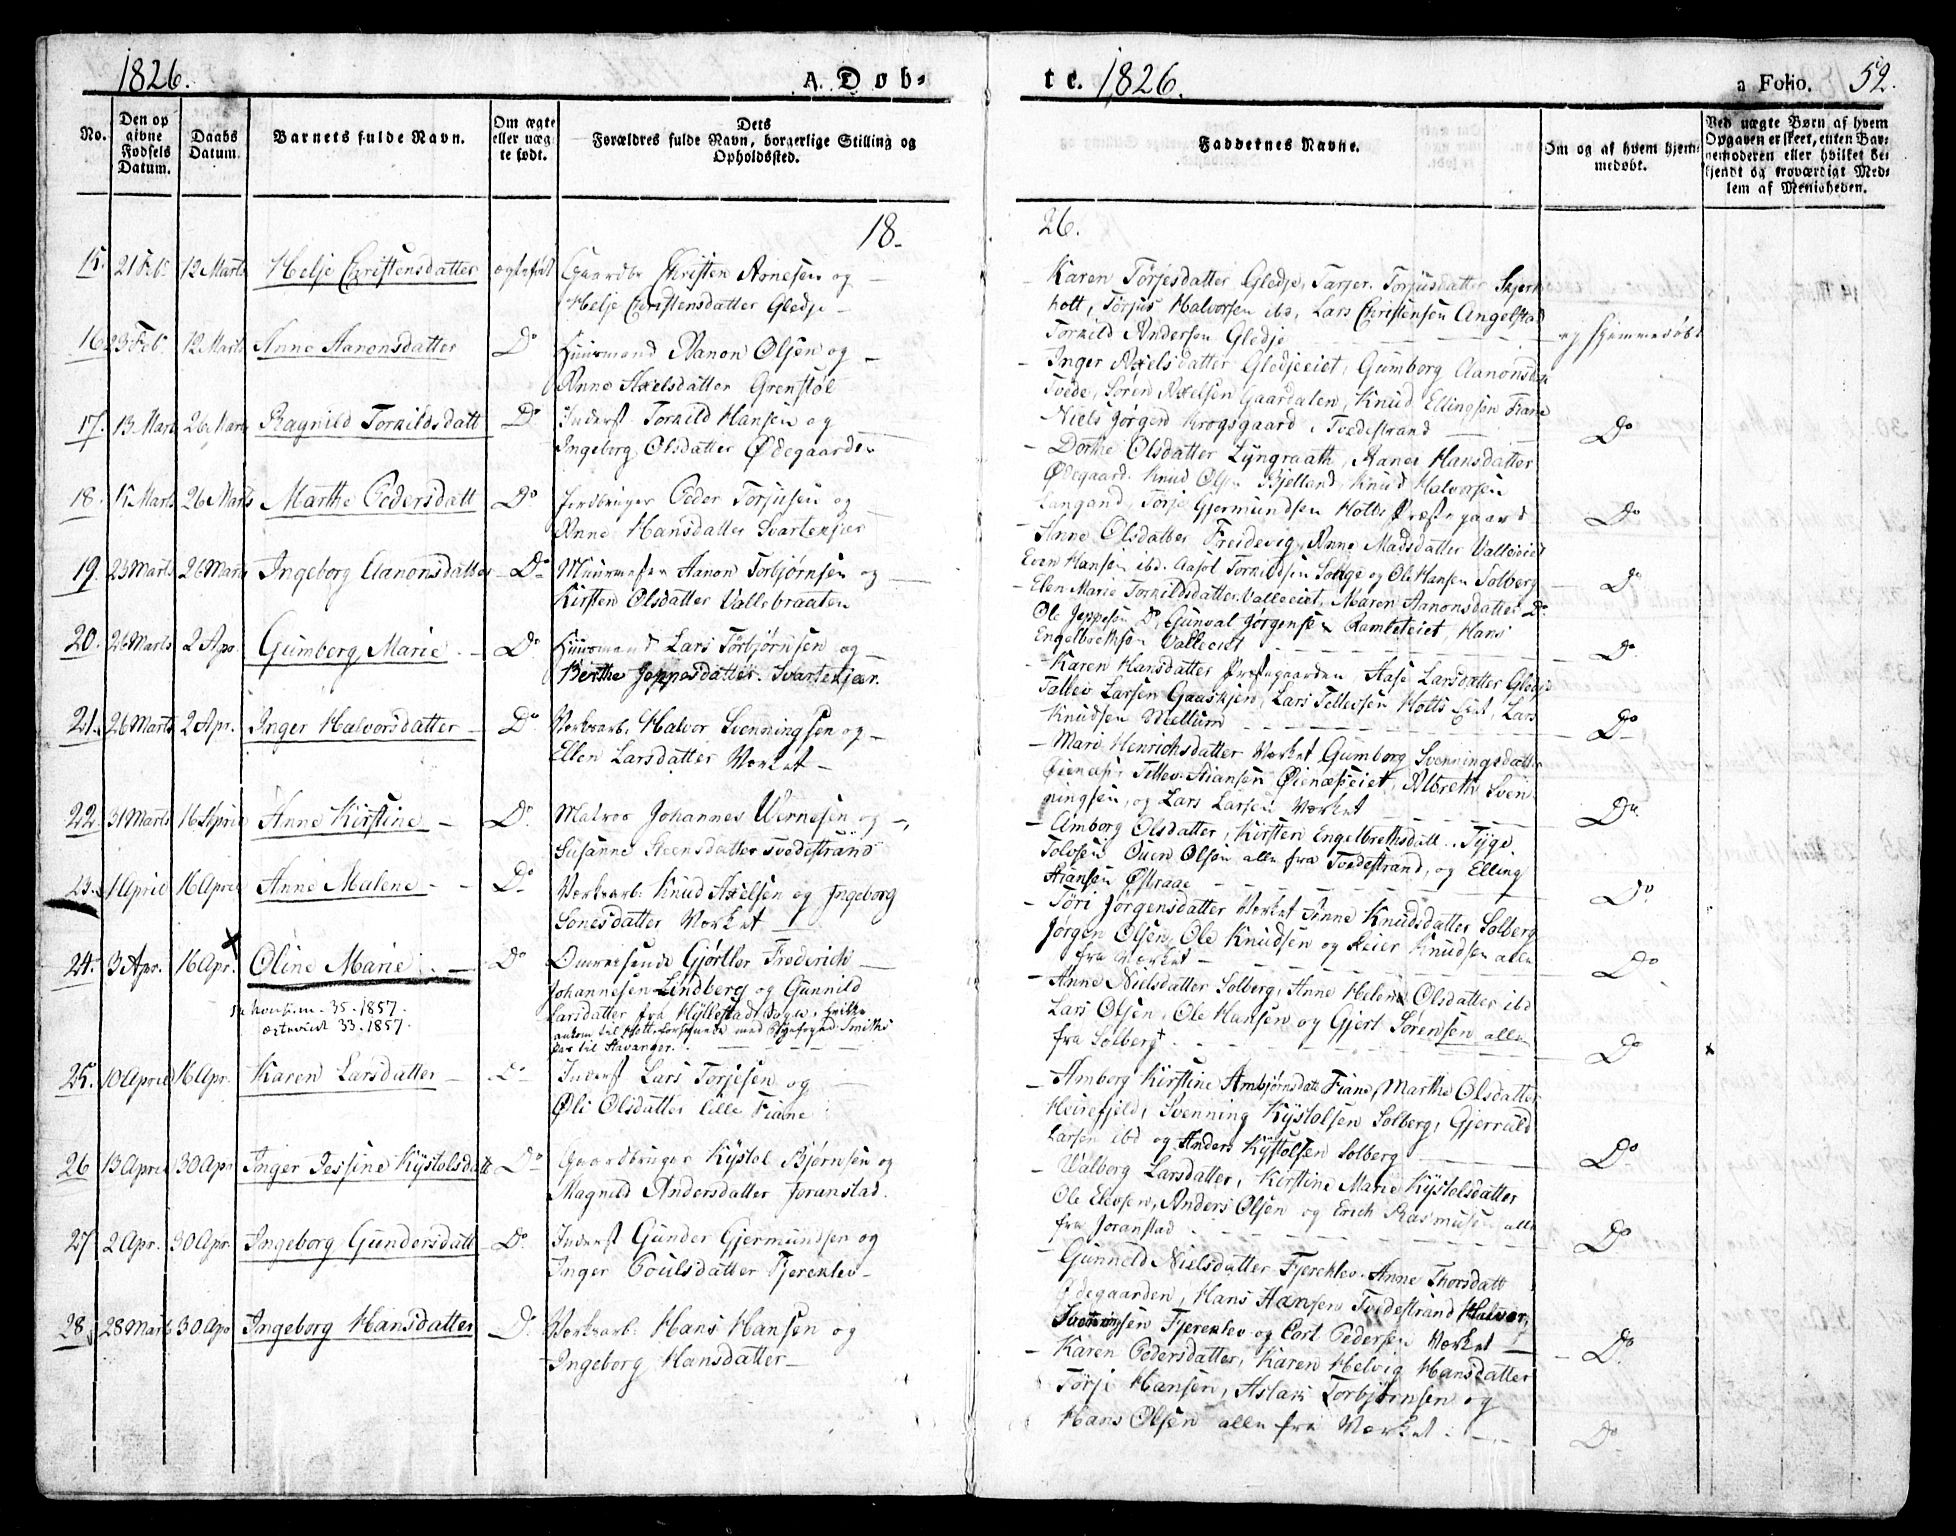 1826.
A. Døb-
No.
Den op
givne
Fødsels
Datum.
Daabs
Datum.
Barnets fulde Navn.
Om ægte
eller uæg-
te født.
Dets
Forældres fulde Navn, borgerlige Stilling og
Opholdssted.
18-
15. 21 Feb. 12 Marts Helje Christensdatter ægtefødt Gaardbr Christen Arnesen og
Helje Christensdatter Gledje
16 23 Feb. 12 Marts Anne Aanonsdatter Do Huusmand Aanon Olsen og
Anne Axelsdatter Grenstøl
17. 13 Mart 26 Marts Ragnild Torkildsdatt Do Inderst Torkild Hansen og
Ingeborg Olsdatter Ødegaarden
18. 17 Marts 26 Marts Marthe Pedersdatt Do Jordbruger Peder Torjusen og
Anne Hansdatter Svartekjær
19. 23 Marts 26 Marts Ingeborg Aanonsdatter Do Muurmester Aanon Torbjørnsen og
Kirsten Olsdatter Vallebraaten
20. 26 Marts 2 Apr. Gumborg Marie Do Huusmand Lars Torbjørnsen og
Berthe Jeppesdatter. Svartekjær.
21. 26 Marts 2 Apr. Inger Halvorsdatter Do Verksarb. Halvor Svenningsen og
Ellen Larsdatter Værket
22. 31 Marts 16 April Anne Kirstine Do Matros Johannes Wernesen og
Susanne Steensdatter Tvedestrand
23. 1 April 16 April Anne Malene Do Verksarb. Knud Axelsen og Ingeborg
Sonesdatter Værket
24. 3 Apr. 16 Apr. Oline Marie Do Omreisende Gjørtler Frederich
Johannesen Lindberg og Gunnild
Larsdatter fra Hyllestad Sogn, hvilke
ankom til Holt
Pas til Stavanger.
35. 1857.
33. 1857.
25. 10 April 16 Apr. Karen Larsdatter Do Inderst Lars Torjesen og
Øli Olsdatter lille Fiane
26 13 April 30 Apr Inger Jessine Kÿstolsdatt Do Gaardbruger Kÿstol Bjørnsen og
Magnild Andersdatter Joranstad.
27 2 Apr. 30 Apr. Ingeborg Gundersdatt Do. Inderst Gunder Gjermundsen og
Inger Poulsdatter Fjereklev
28. 28 Marts 30 Apr Ingeborg Hansdatter Do Verksarb. Hans Hansen og
Ingeborg Hansdatter
te. 1826.
a Folio. 52.
Faddernes Navne.
Om og af hvem hjem-
medøbt.
Ved uægte Børn af hvem
Opgaven er skeet, enten Bar-
nemoderen eller hvilket be-
kjendt og troværdigt Med-
lem af Menigheden.
26.
Karen Torjesdatter Gledje, Tarjer Torjusdatter Skjer
holt, Torjus Halvorsen ibd, Lars Christensen Angelstad
Torkild Andersen Gledje ej hjemmedøbt
Inger Axelsdatter Gledjeeiet, Gumborg Aanonsdat
Tvede, Søren Axelsen Gaardalen, Knud Ellingsen Fiane
Niels Jørgen Krogsgaard i Tvedestrand Do
Dorthe Olsdatter Lyngraath, Hansdatter
Ødegaard. Knud Olsen Bjelland, Knud Halvorsen
Langand, Torje Gjermundsen Holts Præstegaard Do
Anne Olsdatter Freidevig, Anne Madsdatter Valleeiet
Even Hansen ibd. Torkildsen Songe og Ole Hansen Solberg Do
Elen Marie Torkildsdatter Valleeiet, Maren Aanonsdatter Do
Ole Jeppesen Do, Gunval Jørgensen Ramleteiet, Hans
Engelbrethsen Valleeiet Do
Karen Hansdatter Præstegaarden Aase Larsdatter Gledje
Tellev Larsen Gaaskjen, Lars Tellevsen Holts Eiet, Lars
Knudsen Mellum Do
Mari Henrichsdatter Værket Gumborg Svenningsdatter
Tellev Øienæseiet, Albreth Sven
ningsen, og Lars Larsen Værket Do
Amborg Olsdatter, Kirsten Engelbrethsdatt. Tyge
Tolvsen Ouen Olsen alle fra Tvedestrand, og Elling
Do
Tøri Jørgensdatter Værket Anne Knudsdatter Solberg
Jørgen Olsen, Ole Knudsen og Reier Knudsen alle
fra Værket Do
Anne Nielsdatter Solberg, Anne Helene Olsdatter ibd
Lars Olsen, Ole Hansen og Gjert Sørensen alle
fra Solberg Do
Amborg Kirstine Ambjørnsdatt Fiane, Marthe Olsdatter
Heirefjeld, Svenning Kÿstolsen Solberg, Gjeruld
Larsen ibd og Anders Kÿstolsen Solberg Do
Valborg Larsdatter, Kirstine Marie Kÿstolsdatter
Ole Elevsen, Anders Olsen og Erich Rasmusen alle
fra Joranstad Do
Gunnild Nielsdatter Fjereklev. Anne Thorsdatt
Ødegaarden, Hans Hansen Tvedestrand Halvor
Fjereklev og Carl Pedersen Værket Do.
Karen Pedersdatter, Karen Helvig Hansdatter
Torje Hansen, Aslak Torbjørnsen og
Hans Olsen alle fra Værket Do